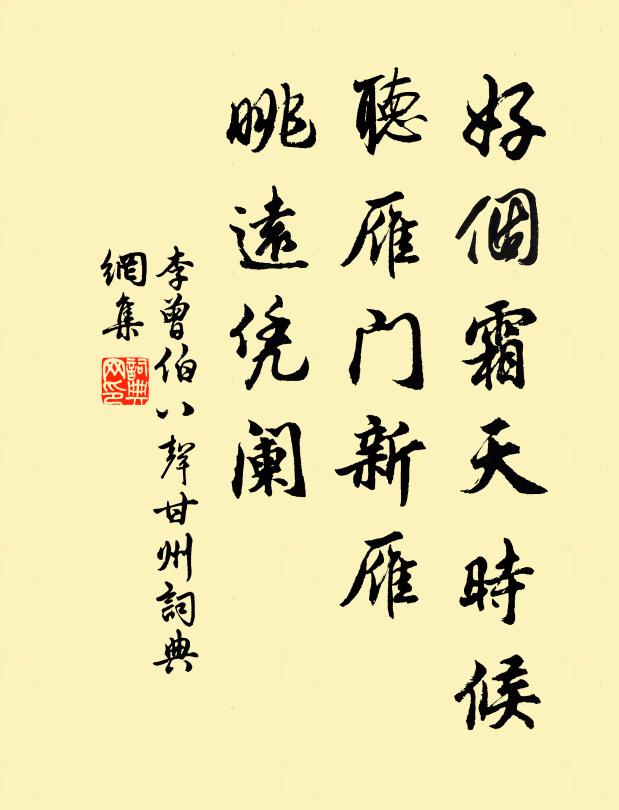 好個霜天時候
聽雁门新雁
眺遠凭阑
李曾伯八聲甘州詞典
網集
詞典網印